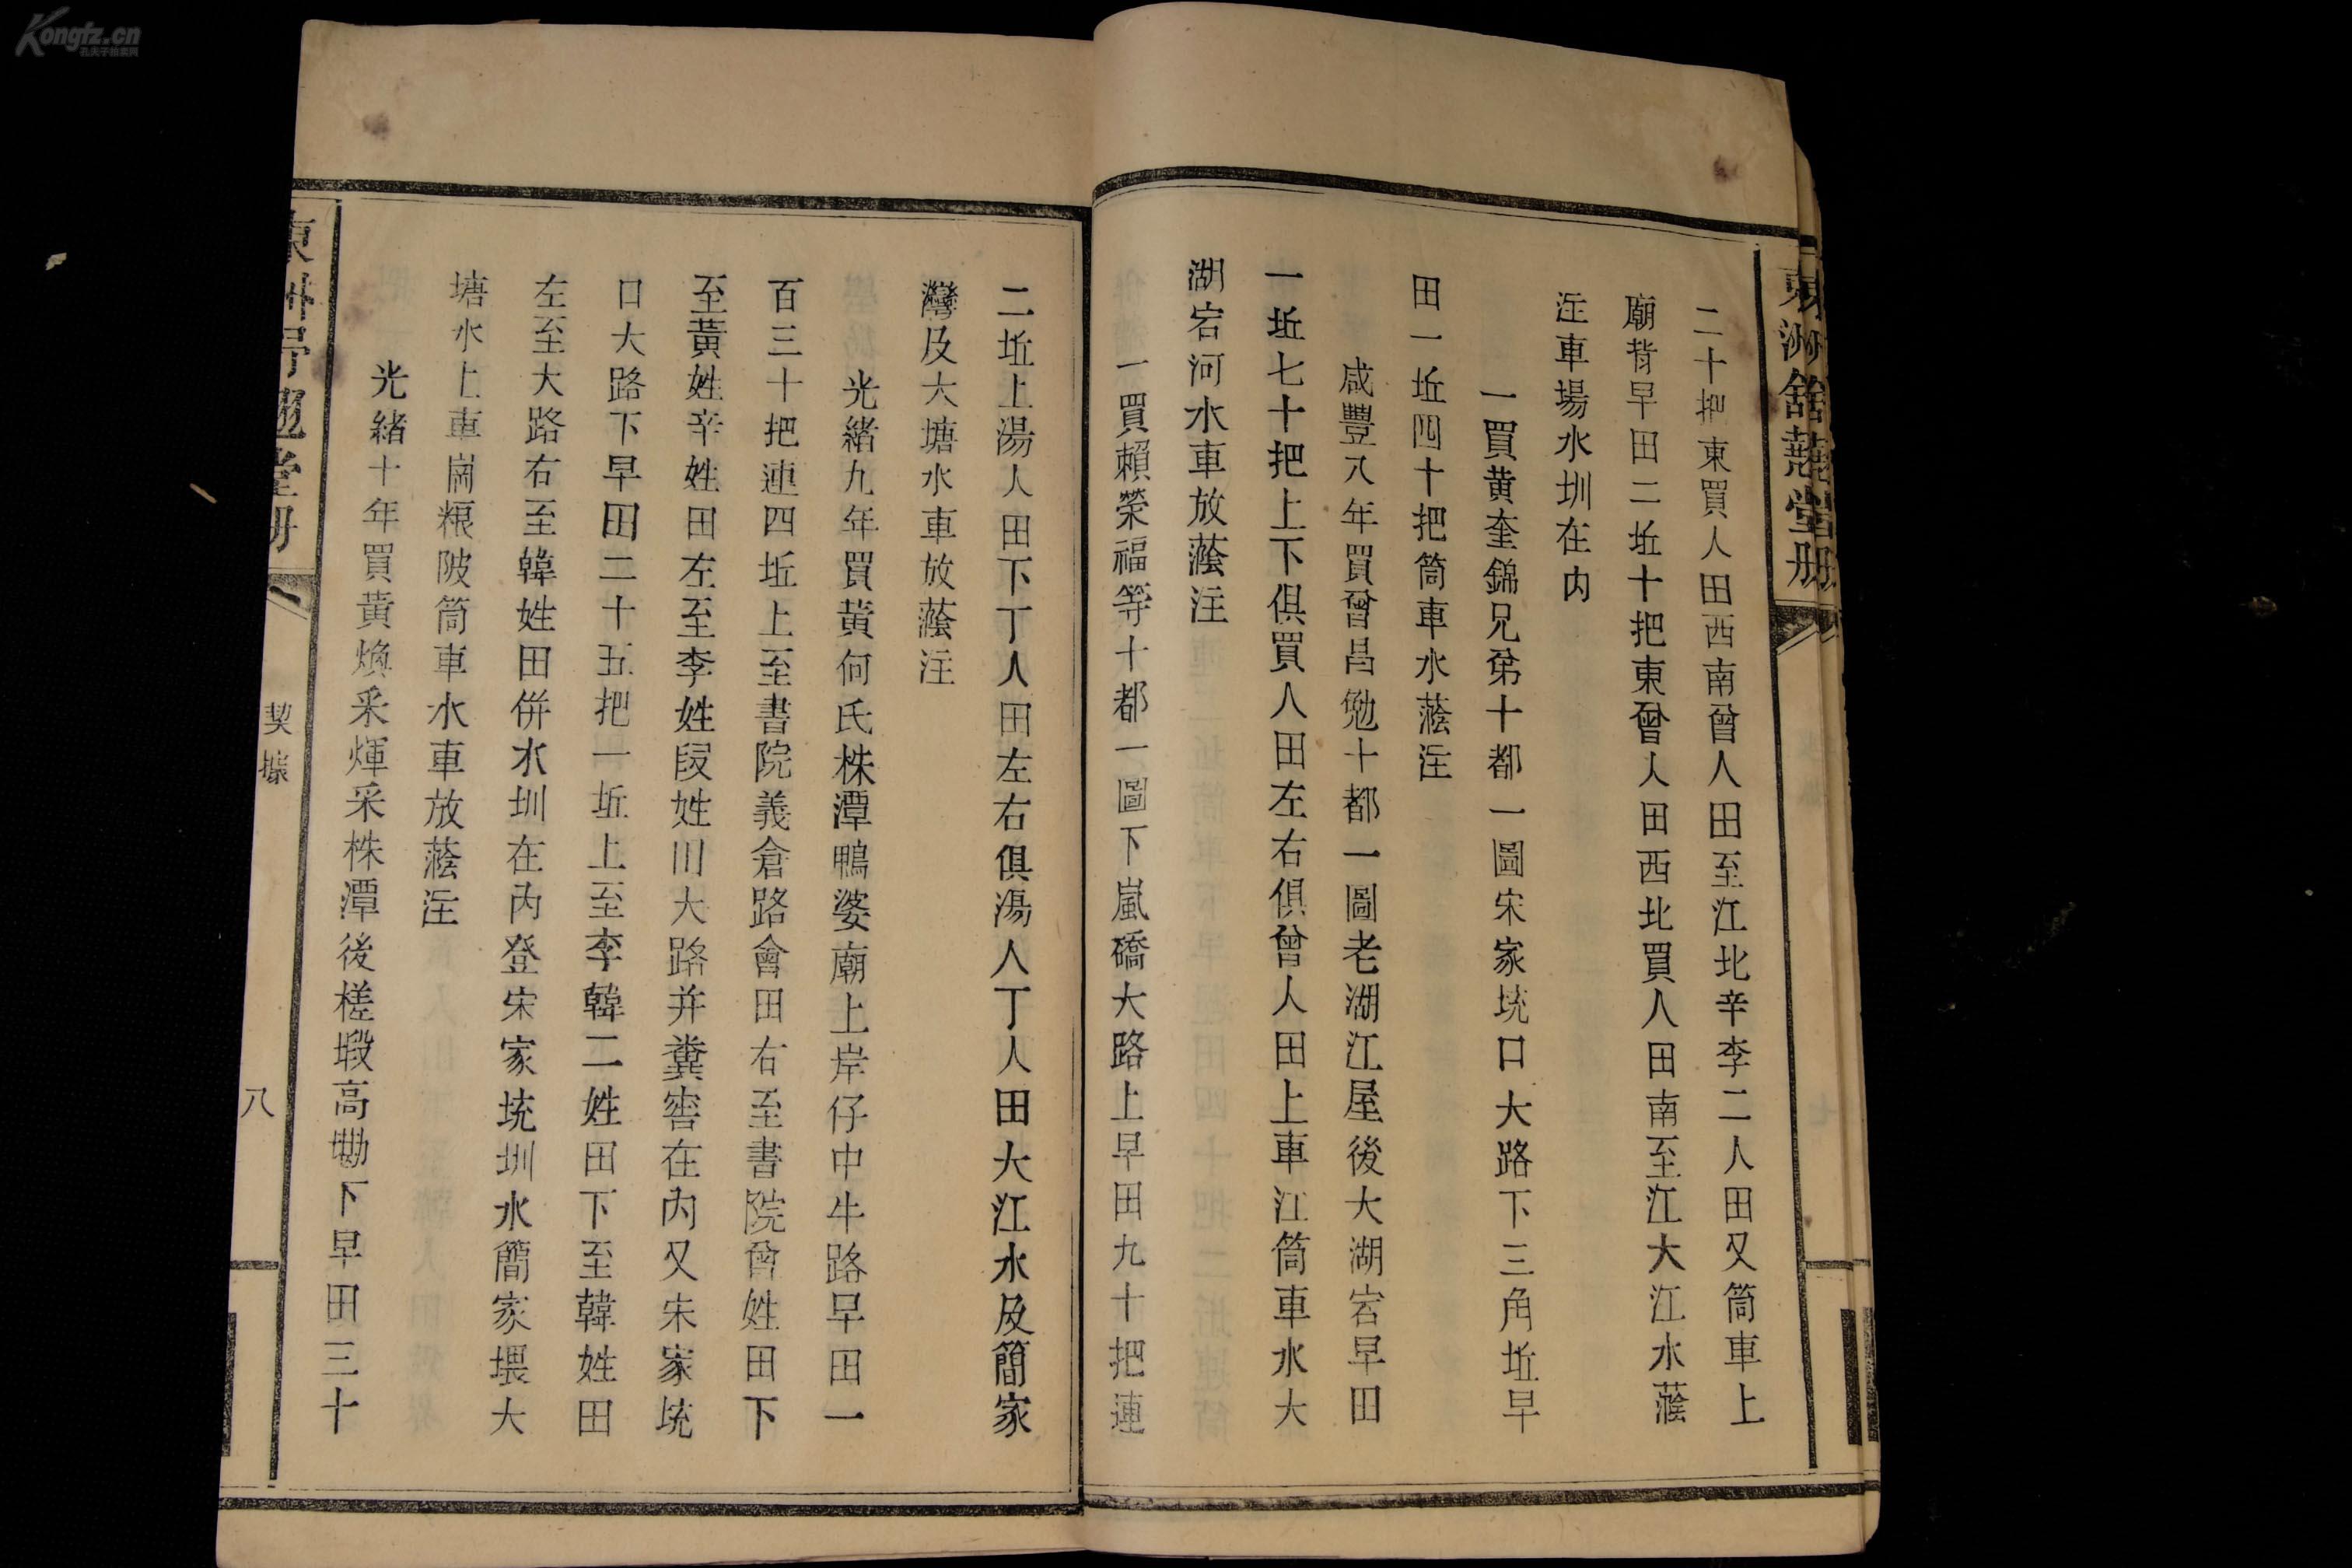 二十把東買人田西南曾人田至江北辛李二人田又筒車上
廟背早田二坵十把東曾人田西北買人田南至江大江水蔭
注車塲水圳在内
一買黄奎錦兄弟十都一圖宋家垅口大路下三角坵早
田一坵四十把筒車水蔭注
咸豐八年買曾昌勉十都一圖老湖江屋後大湖宕早田
一坵七十把上下俱買人田左右俱曾人田上車江筒車水大
湖宕河水車放蔭注
一買賴榮福等十都一圖下嵐礄大路上早田九十把連
二坵上湯人田下丁人田左右俱湯人丁人田大江水及簡家
灣及大塘水車放蔭注
光緒九年買黄何氏株潭鴨婆廟上岸仔中牛路早田一
百三十把連四坵上至書院義倉路會田右至書院曾姓田下
至黄姓辛姓田左至李姓段姓川大路并糞窖在内又宋家垅
口大路下早田二十五把一坵上至李韓二姓田下至韓姓田
左至大路右至韓姓田併水圳在内登宋家垅圳水簡家塅大
塘水上車崗粮陂筒車水車放蔭注
光緒十年買黄煥采煇采株潭後槎塅高坳下早田三十
契據
八
Kongfz.cn
孔夫子旧书网